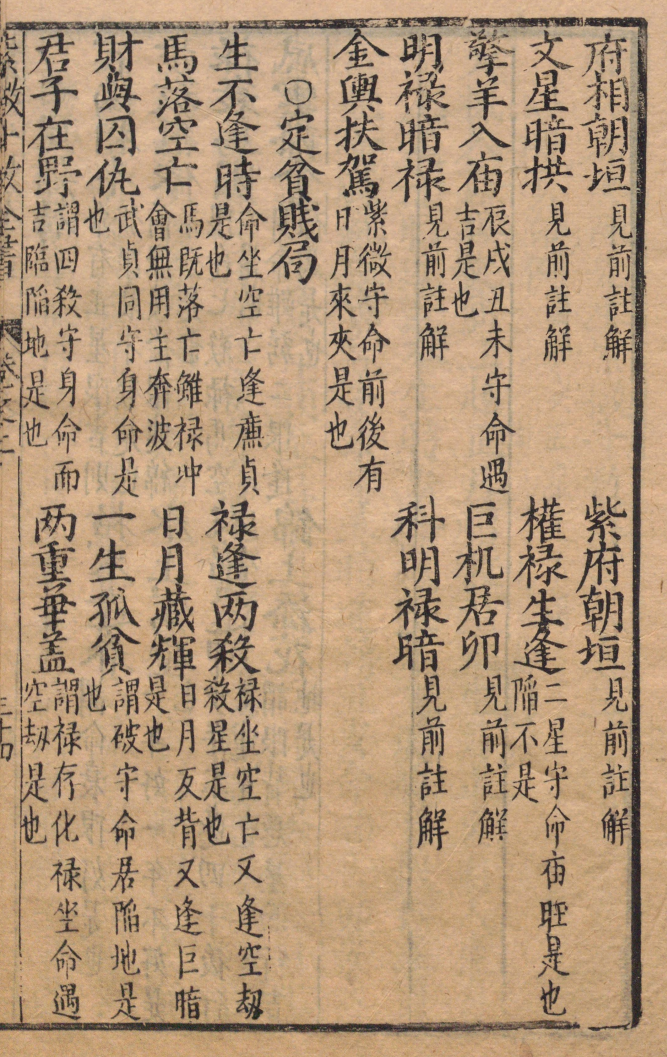 府相朝垣 見前註解 紫府朝垣 見前註解
文星暗拱 見前註解 權禄生逢 二星守命庙旺是也陥不是
擎羊入庙 辰戌丑未守命遇吉是也 巨机居卯 見前註解
明禄暗禄 見前註解 科明禄暗 見前註解
金輿扶駕 紫微守命前後有日月來夾是也
○定貧賎局
生不逢時 命坐空亡逢廉貞是也 禄逢两殺 禄坐空亡又逢空劫殺星是也
馬落空亡 馬既落亡雖禄冲會無用主奔波 日月藏輝 日月反背又逢巨暗是也
財與囚仇 武貞同守身命是也 一生孤貧 謂破守命居陥地是也
君子在野 謂四殺守身命而吉臨陥地是也 两重華盖 謂禄存化禄坐命遇空刼是也
紫微斗数全書 卷之二 三十四